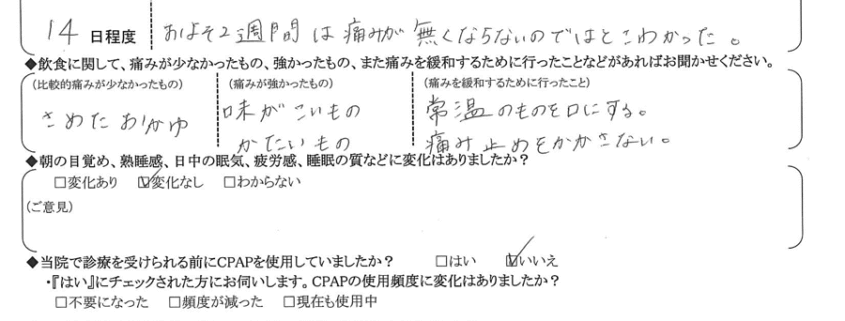 14 日程度 およそ2週間は痛みが無くならないのではとこわかった。
◆飲食に関して、痛みが少なかったもの、強かったもの、また痛みを緩和するために行ったことなどがあればお聞かせください。
(比較的痛みが少なかったもの) (痛みが強かったもの) (痛みを緩和するために行ったこと)
さめたおかゆ 味がこいもの 常温のものを口にする。
かたいもの 痛み止めをかかさない。
◆朝の目覚め、熟睡感、日中の眠気、疲労感、睡眠の質などに変化はありましたか?
□変化あり ☑変化なし □わからない
(ご意見)
◆当院で診療を受けられる前にCPAPを使用していましたか? □はい ☑いいえ
・『はい』にチェックされた方にお伺いします。CPAPの使用頻度に変化はありましたか?
□不要になった □頻度が減った □現在も使用中